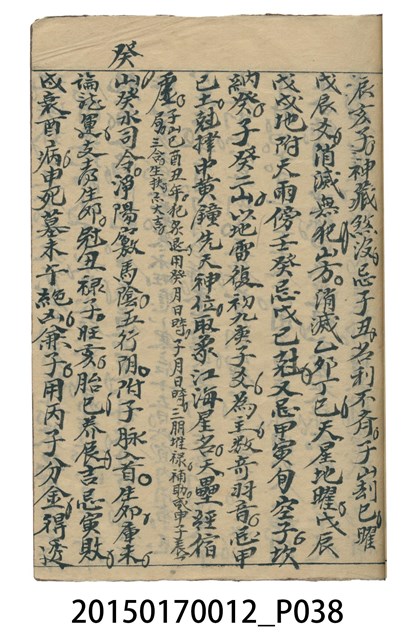 癸
辰亥子神藏煞沒忌子丑名利不育子山割巳曜
戊辰爻消滅無犯山方消滅乙卯丁巳天星地曜戊辰
戊戌地附天雨傍壬癸忌戊己尅又忌甲寅旬空子坎
納癸子癸二山以地雷復初九庚子爻為主数音羽音忌甲
己土尅律中黃鐘先天神位取象江海星名天壘經宿
虛子山己酉丑年犯
局三合生扶
退用癸月日時子月日時三朋堆祿補助或申子辰
山癸水司令淨陽竅馬陰五行阴附子脉入首生卯庫未
論龍運支壽生卯尅丑祿子旺亥胎巳养辰吉忌寅敗
戌衰酉病申死墓未午絕凶兼子用丙子分金得透
20150170012_P038